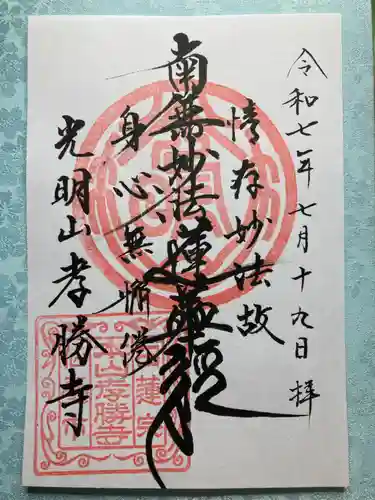 令和七年七月十九日拝
情存妙法故
南無妙法蓮華経
身心無懈倦
光明山孝勝寺
蓮宗
山孝勝寺